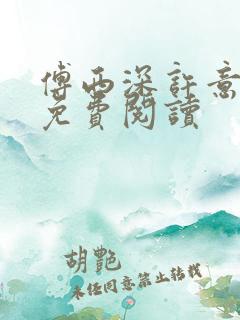 傅西深許意
免費閱讀
胡艷
未經同意禁止转载